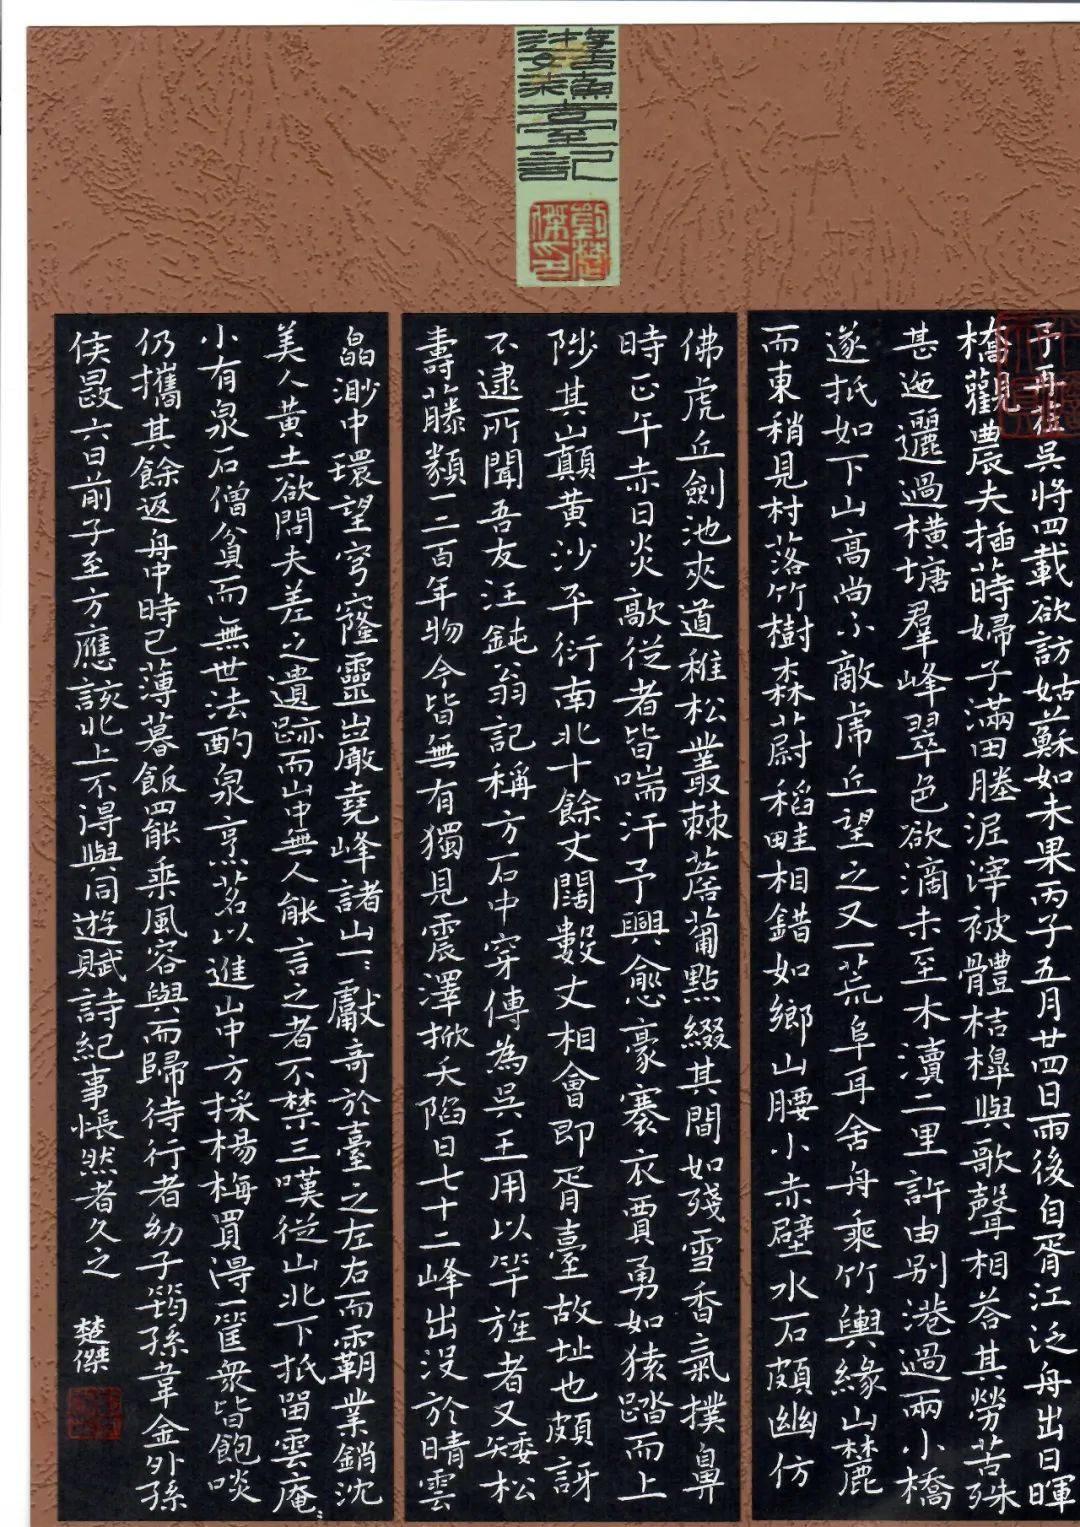 遊姑蘇臺記
予再蒞吳將四載欲訪姑蘇如未果丙子五月廿四日雨後自胥江泛舟出日暉
橋觀農夫插蒔婦子滿田塍泥滓被體桔槔與歌聲相答其勞苦殊
甚迤邐過橫塘羣峰翠色欲滴未至木瀆二里許由別港過兩小橋
遂抵如下山高尚不敵虎丘望之又一荒阜耳舍舟乘竹輿緣山麓
而東稍見村落竹樹森蔚稻畦相錯如鄉山腰小赤壁水石頗幽仿
佛虎丘劍池夾道稚松叢棘薝蔔點綴其間如殘雪香氣撲鼻
時正午赤日炎歊從者皆喘汗予興愈豪褰衣賈勇如猿踏而上
陟其山巔黃沙平衍南北十餘丈闊數丈相會即胥臺故址也頗訝
不逮所聞吾友汪鈍翁記稱方石中穿傳為吳王用以竿旌者又矮松
壽藤類一二百年物今皆無有獨見震澤掀天陷日七十二峰出没於晴雲
皛渺中環望穹窿靈岩厰堯峰諸山一一獻奇於臺之左右而霸業銷沈
美人黃土欲問夫差之遺跡而山中無人能言之者不禁三嘆從山北下抵畱雲庵庵
小有泉石僧貧而無世法酌泉烹茗以進山中方採楊梅買得一筐衆皆飽啖
仍攜其餘返舟中時已薄暮飯罷乘風容與而歸待行者幼子筠孫韋金外孫
侯晸六日前子至方應該北上不得與同遊賦詩紀事悵然者久之 楚傑